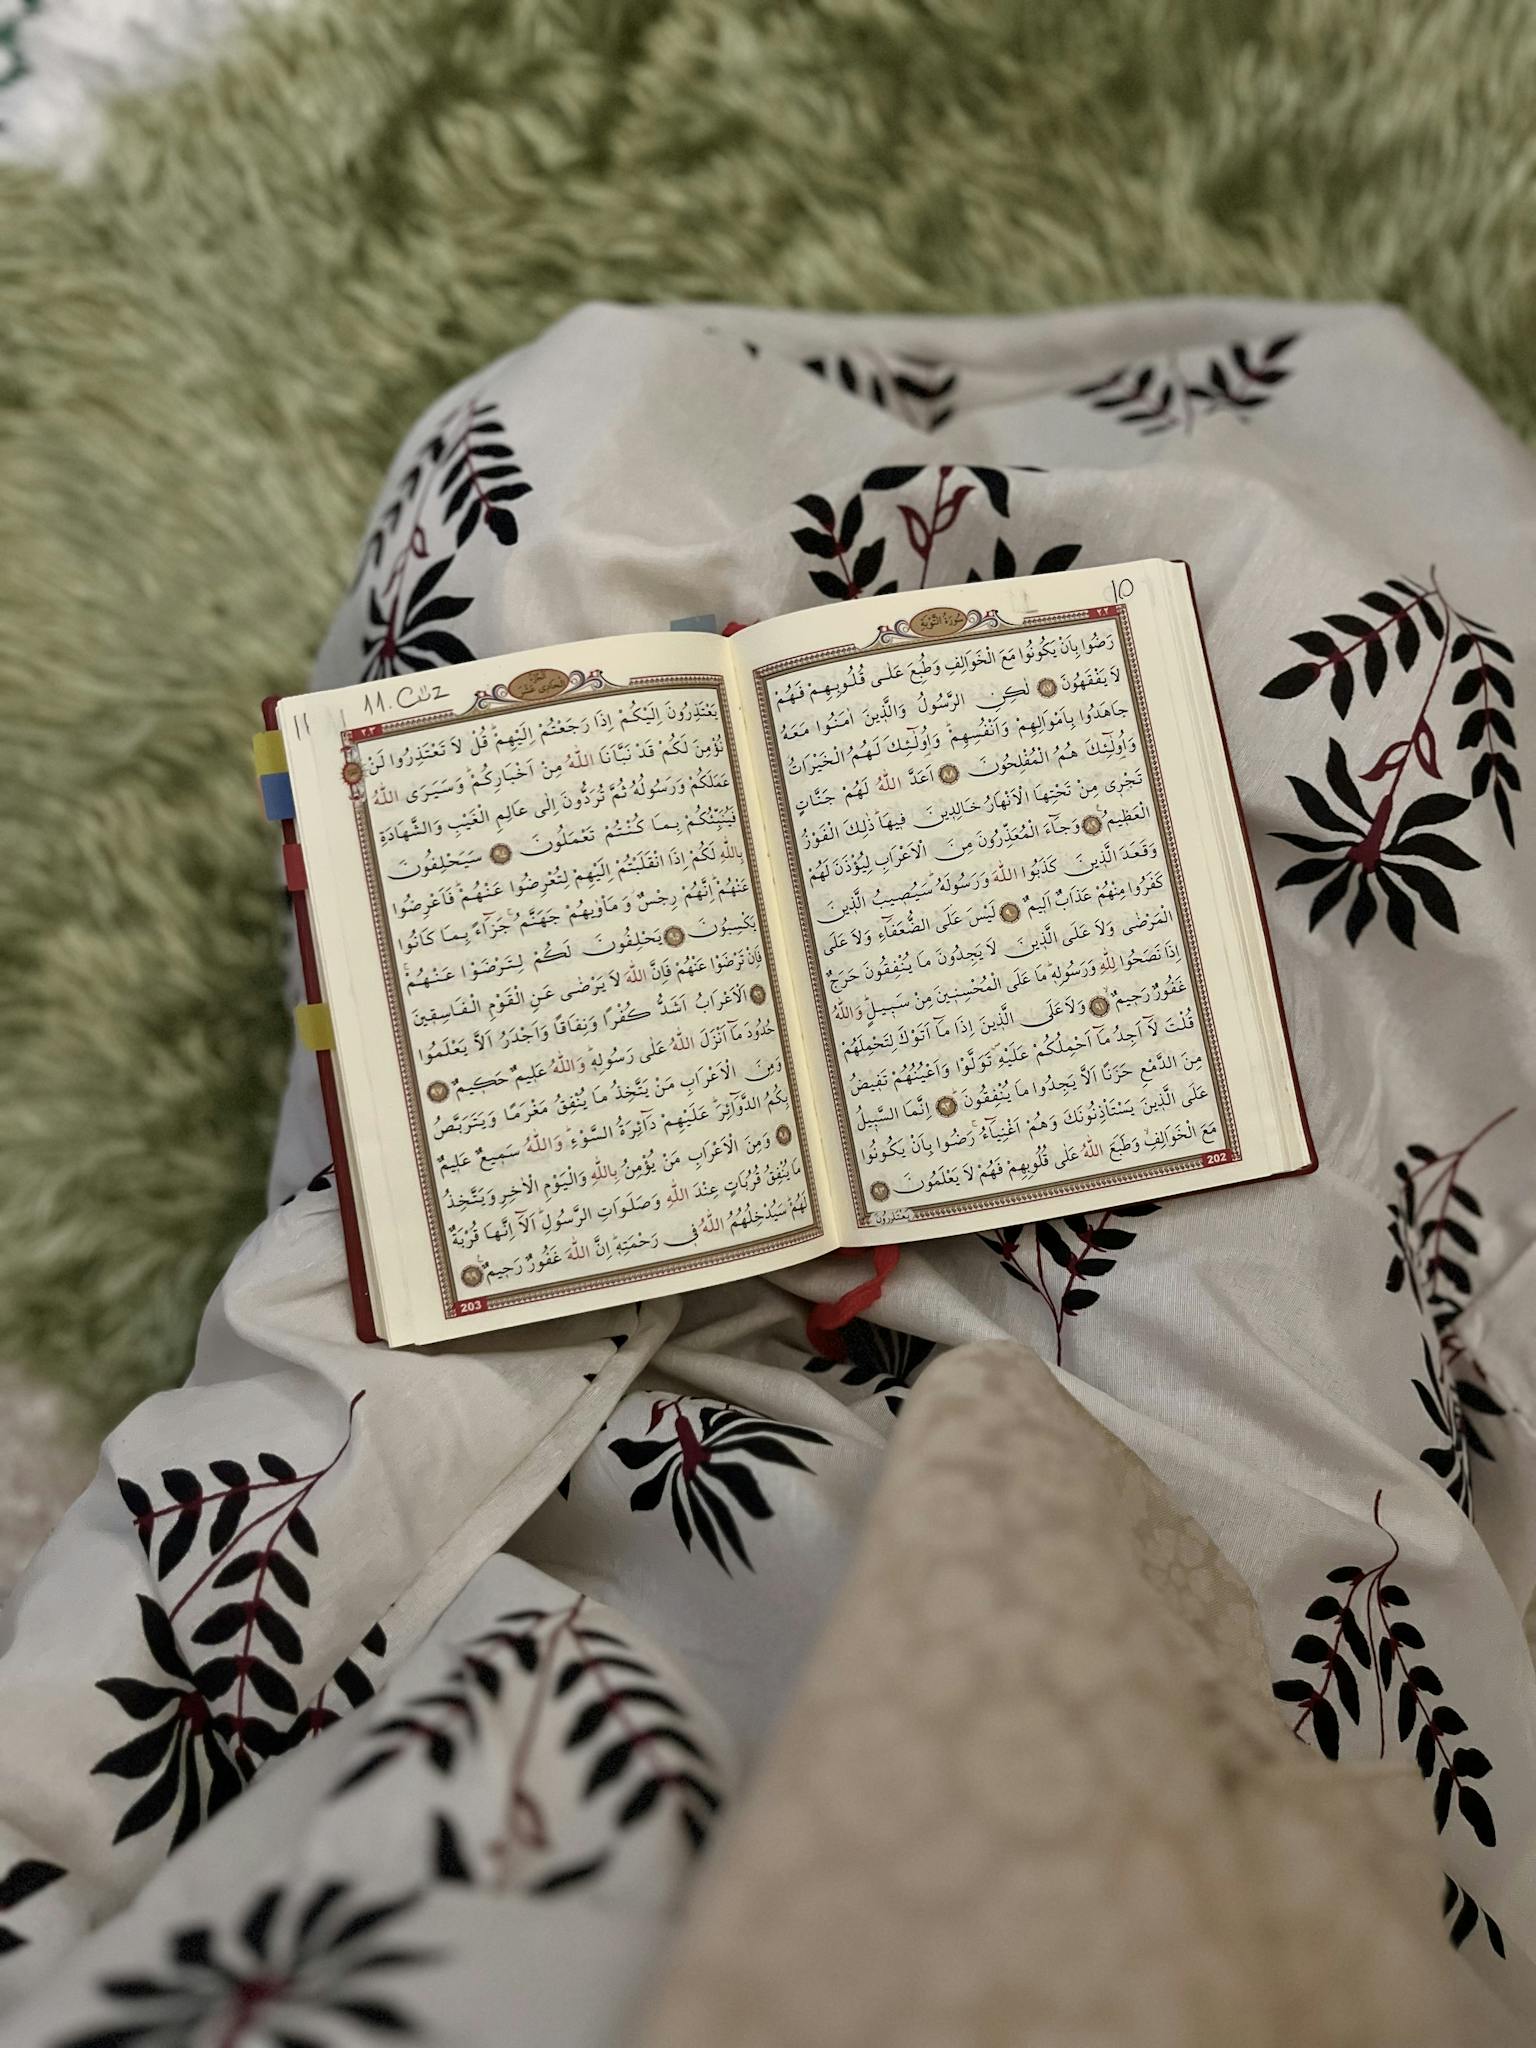 10
سُورَةُ التَّوْبَةِ
٢٠٢
رَضُوا بِاَنْ يَكُونُوا مَعَ الْخَوَالِفِ وَطُبِعَ عَلٰى قُلُوبِهِمْ فَهُمْ
لَا يَفْقَهُونَ ﴿٨٧﴾ لٰكِنِ الرَّسُولُ وَالَّذِينَ اٰمَنُوا مَعَهُ
جَاهَدُوا بِاَمْوَالِهِمْ وَاَنْفُسِهِمْ وَاُو۬لٰٓئِكَ لَهُمُ الْخَيْرَاتُ
وَاُو۬لٰٓئِكَ هُمُ الْمُفْلِحُونَ ﴿٨٨﴾ اَعَدَّ اللّٰهُ لَهُمْ جَنَّاتٍ
تَجْرِى مِنْ تَحْتِهَا الْاَنْهَارُ خَالِدِينَ فِيهَا ذٰلِكَ الْفَوْزُ
الْعَظِيمُ ﴿٨٩﴾ وَجَٓاءَ الْمُعَذِّرُونَ مِنَ الْاَعْرَابِ لِيُؤْذَنَ لَهُمْ
وَقَعَدَ الَّذِينَ كَذَبُوا اللّٰهَ وَرَسُولَهُ سَيُصِيبُ الَّذِينَ
كَفَرُوا مِنْهُمْ عَذَابٌ اَلِيمٌ ﴿٩٠﴾ لَيْسَ عَلَى الضُّعَفَٓاءِ وَلَا عَلَى
الْمَرْضٰى وَلَا عَلَى الَّذِينَ لَا يَجِدُونَ مَا يُنْفِقُونَ حَرَجٌ
اِذَا نَصَحُوا لِلّٰهِ وَرَسُولِهِ مَا عَلَى الْمُحْسِنِينَ مِنْ سَبِيلٍ وَاللّٰهُ
غَفُورٌ رَحِيمٌ ﴿٩١﴾ وَلَا عَلَى الَّذِينَ اِذَا مَٓا اَتَوْكَ لِتَحْمِلَهُمْ
قُلْتَ لَٓا اَجِدُ مَٓا اَحْمِلُكُمْ عَلَيْهِ تَوَلَّوْا وَاَعْيُنُهُمْ تَفِيضُ
مِنَ الدَّمْعِ حَزَنًا اَلَّا يَجِدُوا مَا يُنْفِقُونَ ﴿٩٢﴾ اِنَّمَا السَّبِيلُ
عَلَى الَّذِينَ يَسْتَأْذِنُونَكَ وَهُمْ اَغْنِيَٓاءُ رَضُوا بِاَنْ يَكُونُوا
مَعَ الْخَوَالِفِ وَطَبَعَ اللّٰهُ عَلٰى قُلُوبِهِمْ فَهُمْ لَا يَعْلَمُونَ ﴿٩٣﴾
202
يَعْتَذِرُونَ
11
11. Cüz
اَلْجُزْءُ الْحَادِى عَشَرَ
٢٠٣
يَعْتَذِرُونَ اِلَيْكُمْ اِذَا رَجَعْتُمْ اِلَيْهِمْ قُلْ لَا تَعْتَذِرُوا لَنْ
نُؤْمِنَ لَكُمْ قَدْ نَبَّاَنَا اللّٰهُ مِنْ اَخْبَارِكُمْ وَسَيَرَى اللّٰهُ
عَمَلَكُمْ وَرَسُولُهُ ثُمَّ تُرَدُّونَ اِلٰى عَالِمِ الْغَيْبِ وَالشَّهَادَةِ
فَيُنَبِّئُكُمْ بِمَا كُنْتُمْ تَعْمَلُونَ ﴿٩٤﴾ سَيَحْلِفُونَ
بِاللّٰهِ لَكُمْ اِذَا انْقَلَبْتُمْ اِلَيْهِمْ لِتُعْرِضُوا عَنْهُمْ فَاَعْرِضُوا
عَنْهُمْ اِنَّهُمْ رِجْسٌ وَمَأْوٰيهُمْ جَهَنَّمُ جَزَٓاءً بِمَا كَانُوا
يَكْسِبُونَ ﴿٩٥﴾ يَحْلِفُونَ لَكُمْ لِتَرْضَوْا عَنْهُمْ
فَاِنْ تَرْضَوْا عَنْهُمْ فَاِنَّ اللّٰهَ لَا يَرْضٰى عَنِ الْقَوْمِ الْفَاسِقِينَ
﴿٩٦﴾ اَلْاَعْرَابُ اَشَدُّ كُفْرًا وَنِفَاقًا وَاَجْدَرُ اَلَّا يَعْلَمُوا
حُدُودَ مَٓا اَنْزَلَ اللّٰهُ عَلٰى رَسُولِهِ وَاللّٰهُ عَلِيمٌ حَكِيمٌ ﴿٩٧﴾
وَمِنَ الْاَعْرَابِ مَنْ يَتَّخِذُ مَا يُنْفِقُ مَغْرَمًا وَيَتَرَبَّصُ
بِكُمُ الدَّوَٓائِرَ عَلَيْهِمْ دَٓائِرَةُ السَّوْءِ وَاللّٰهُ سَمِيعٌ عَلِيمٌ
﴿٩٨﴾ وَمِنَ الْاَعْرَابِ مَنْ يُؤْمِنُ بِاللّٰهِ وَالْيَوْمِ الْاٰخِرِ وَيَتَّخِذُ
مَا يُنْفِقُ قُرُبَاتٍ عِنْدَ اللّٰهِ وَصَلَوَاتِ الرَّسُولِ اَلَٓا اِنَّهَا قُرْبَةٌ
لَهُمْ سَيُدْخِلُهُمُ اللّٰهُ فِى رَحْمَتِهِ اِنَّ اللّٰهَ غَفُورٌ رَحِيمٌ ﴿٩٩﴾
203